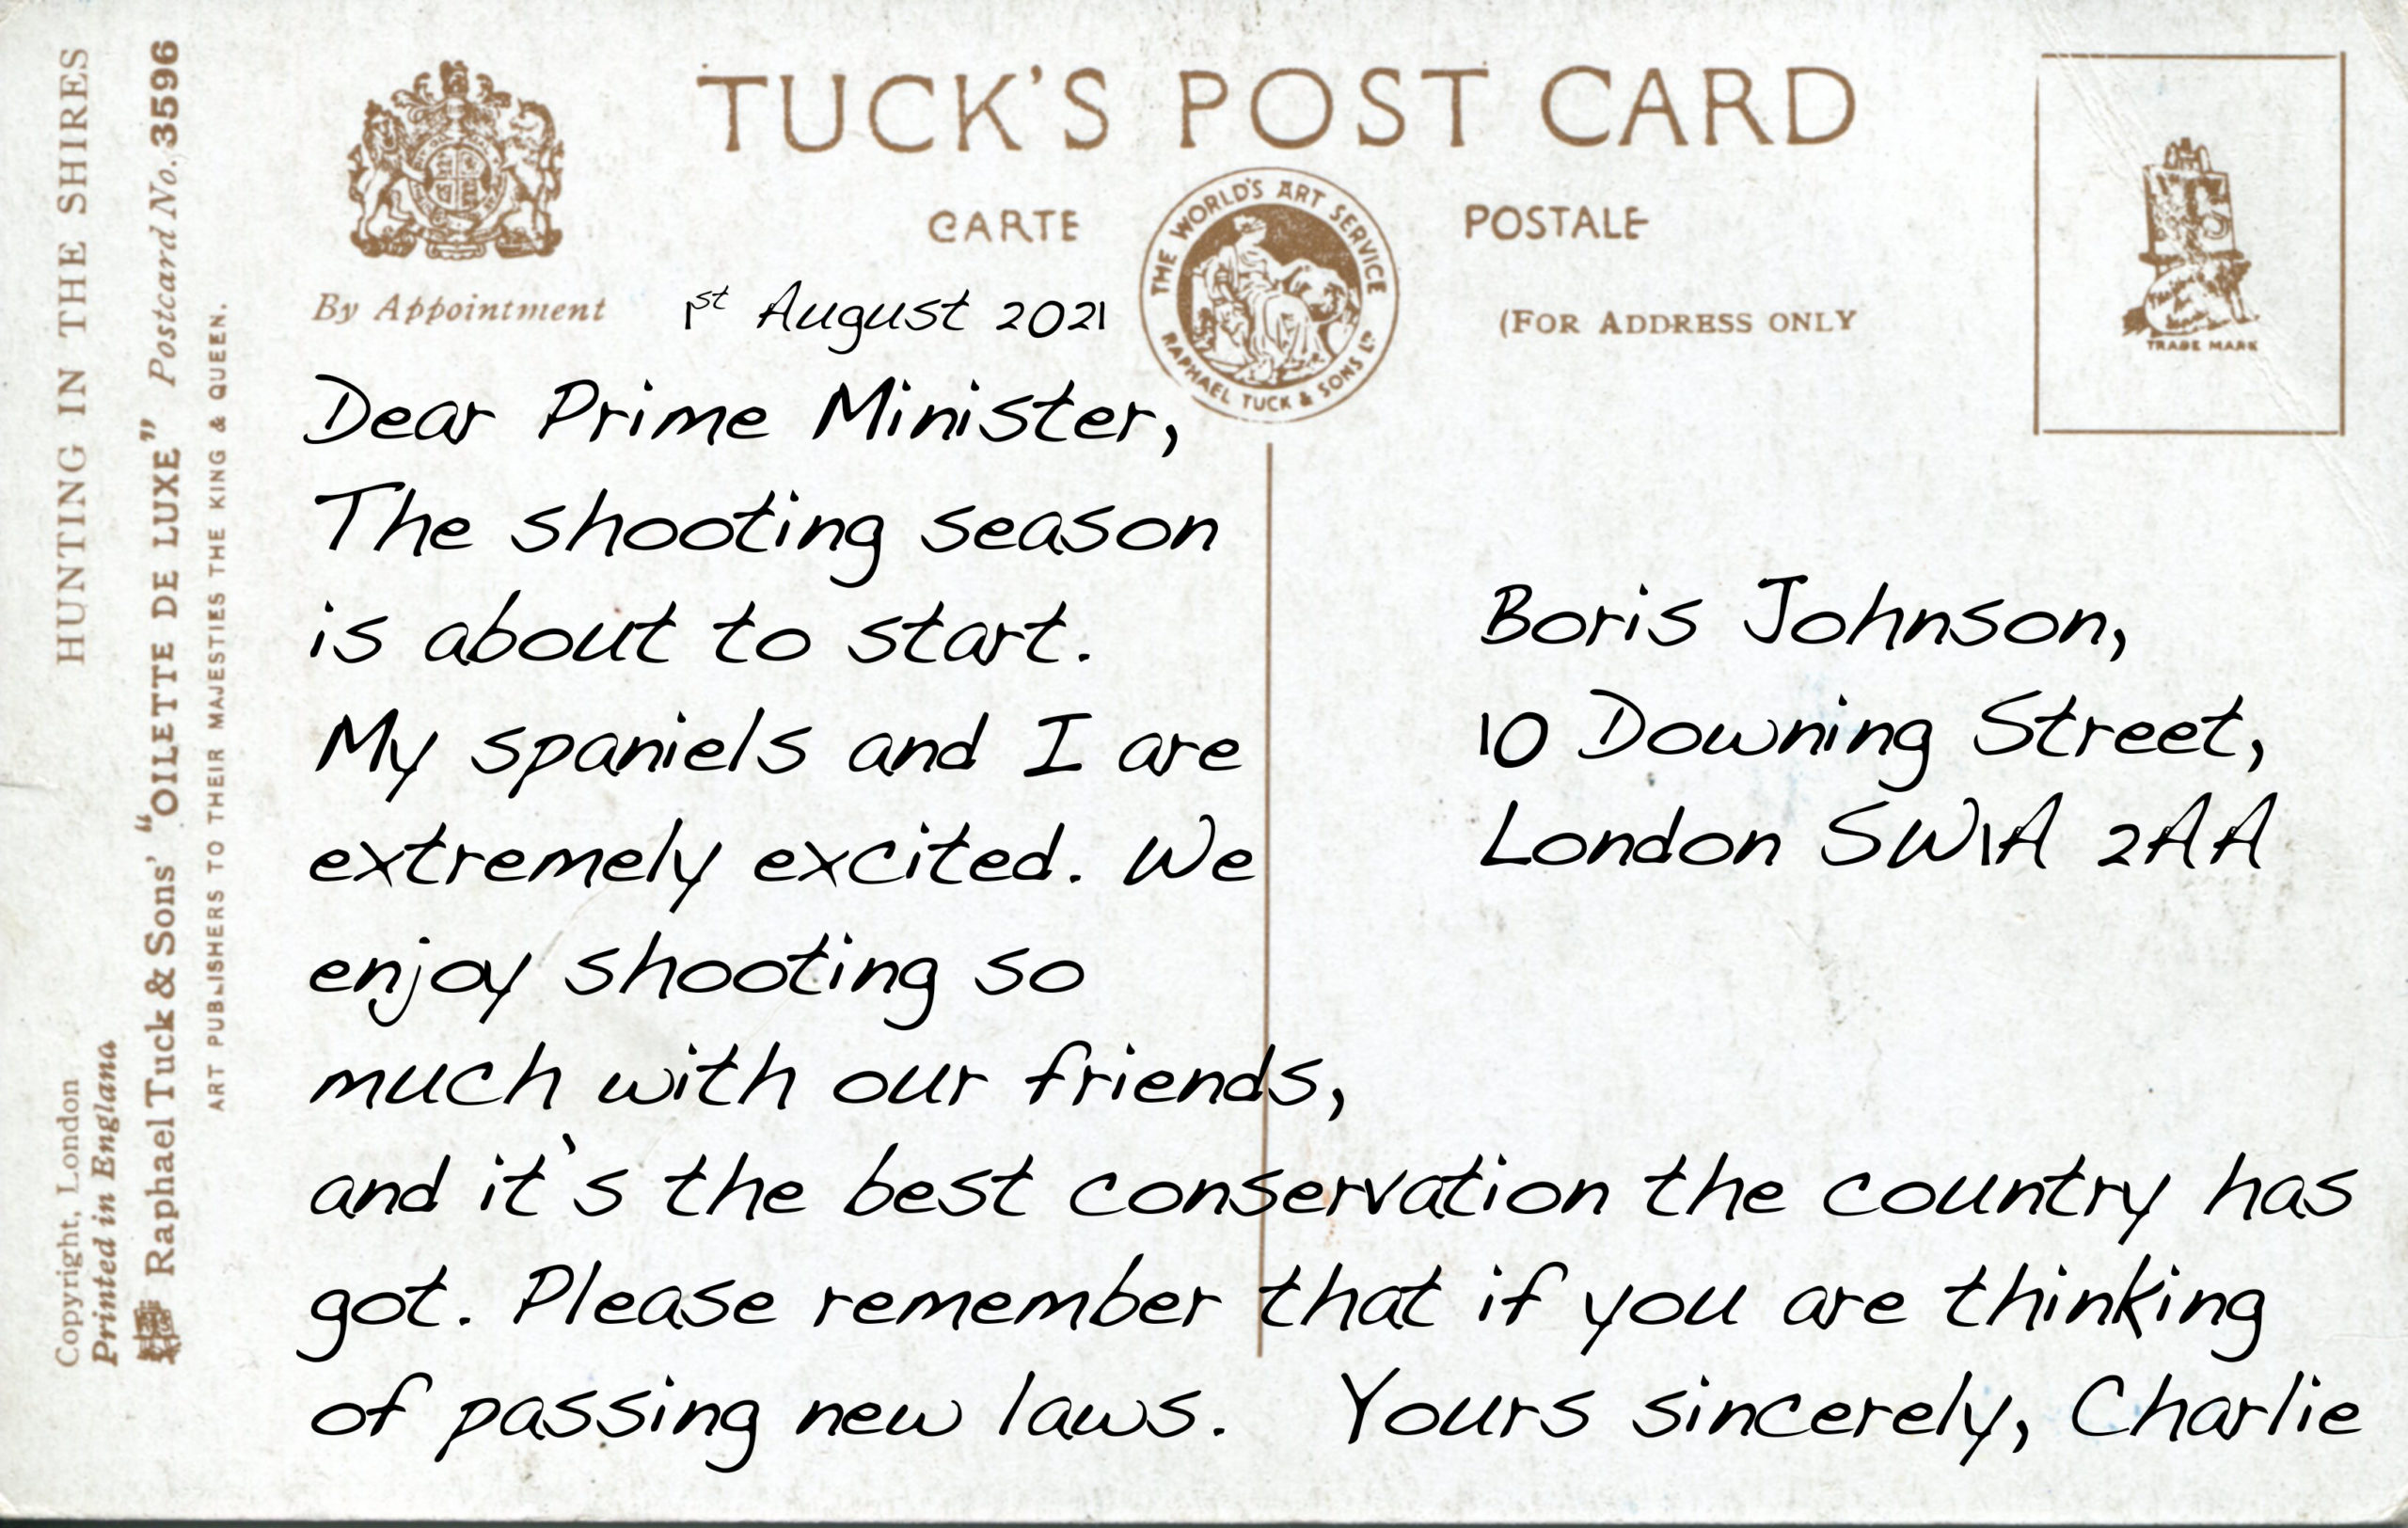 HUNTING IN THE SHIRES
Copyright, London
Printed in England
Raphael Tuck & Sons' "OILETTE DE LUXE" Postcard No. 3596
ART PUBLISHERS TO THEIR MAJESTIES THE KING & QUEEN.
TUCK'S POST CARD
CARTE POSTALE
THE WORLD'S ART SERVICE
RAPHAEL TUCK & SONS LD
By Appointment
(FOR ADDRESS ONLY
TRADE MARK
1st August 2021
Dear Prime Minister,
The shooting season
is about to start.
My spaniels and I are
extremely excited. We
enjoy shooting so
much with our friends,
and it's the best conservation the country has
got. Please remember that if you are thinking
of passing new laws. Yours sincerely, Charlie
Boris Johnson,
10 Downing Street,
London SW1A 2AA